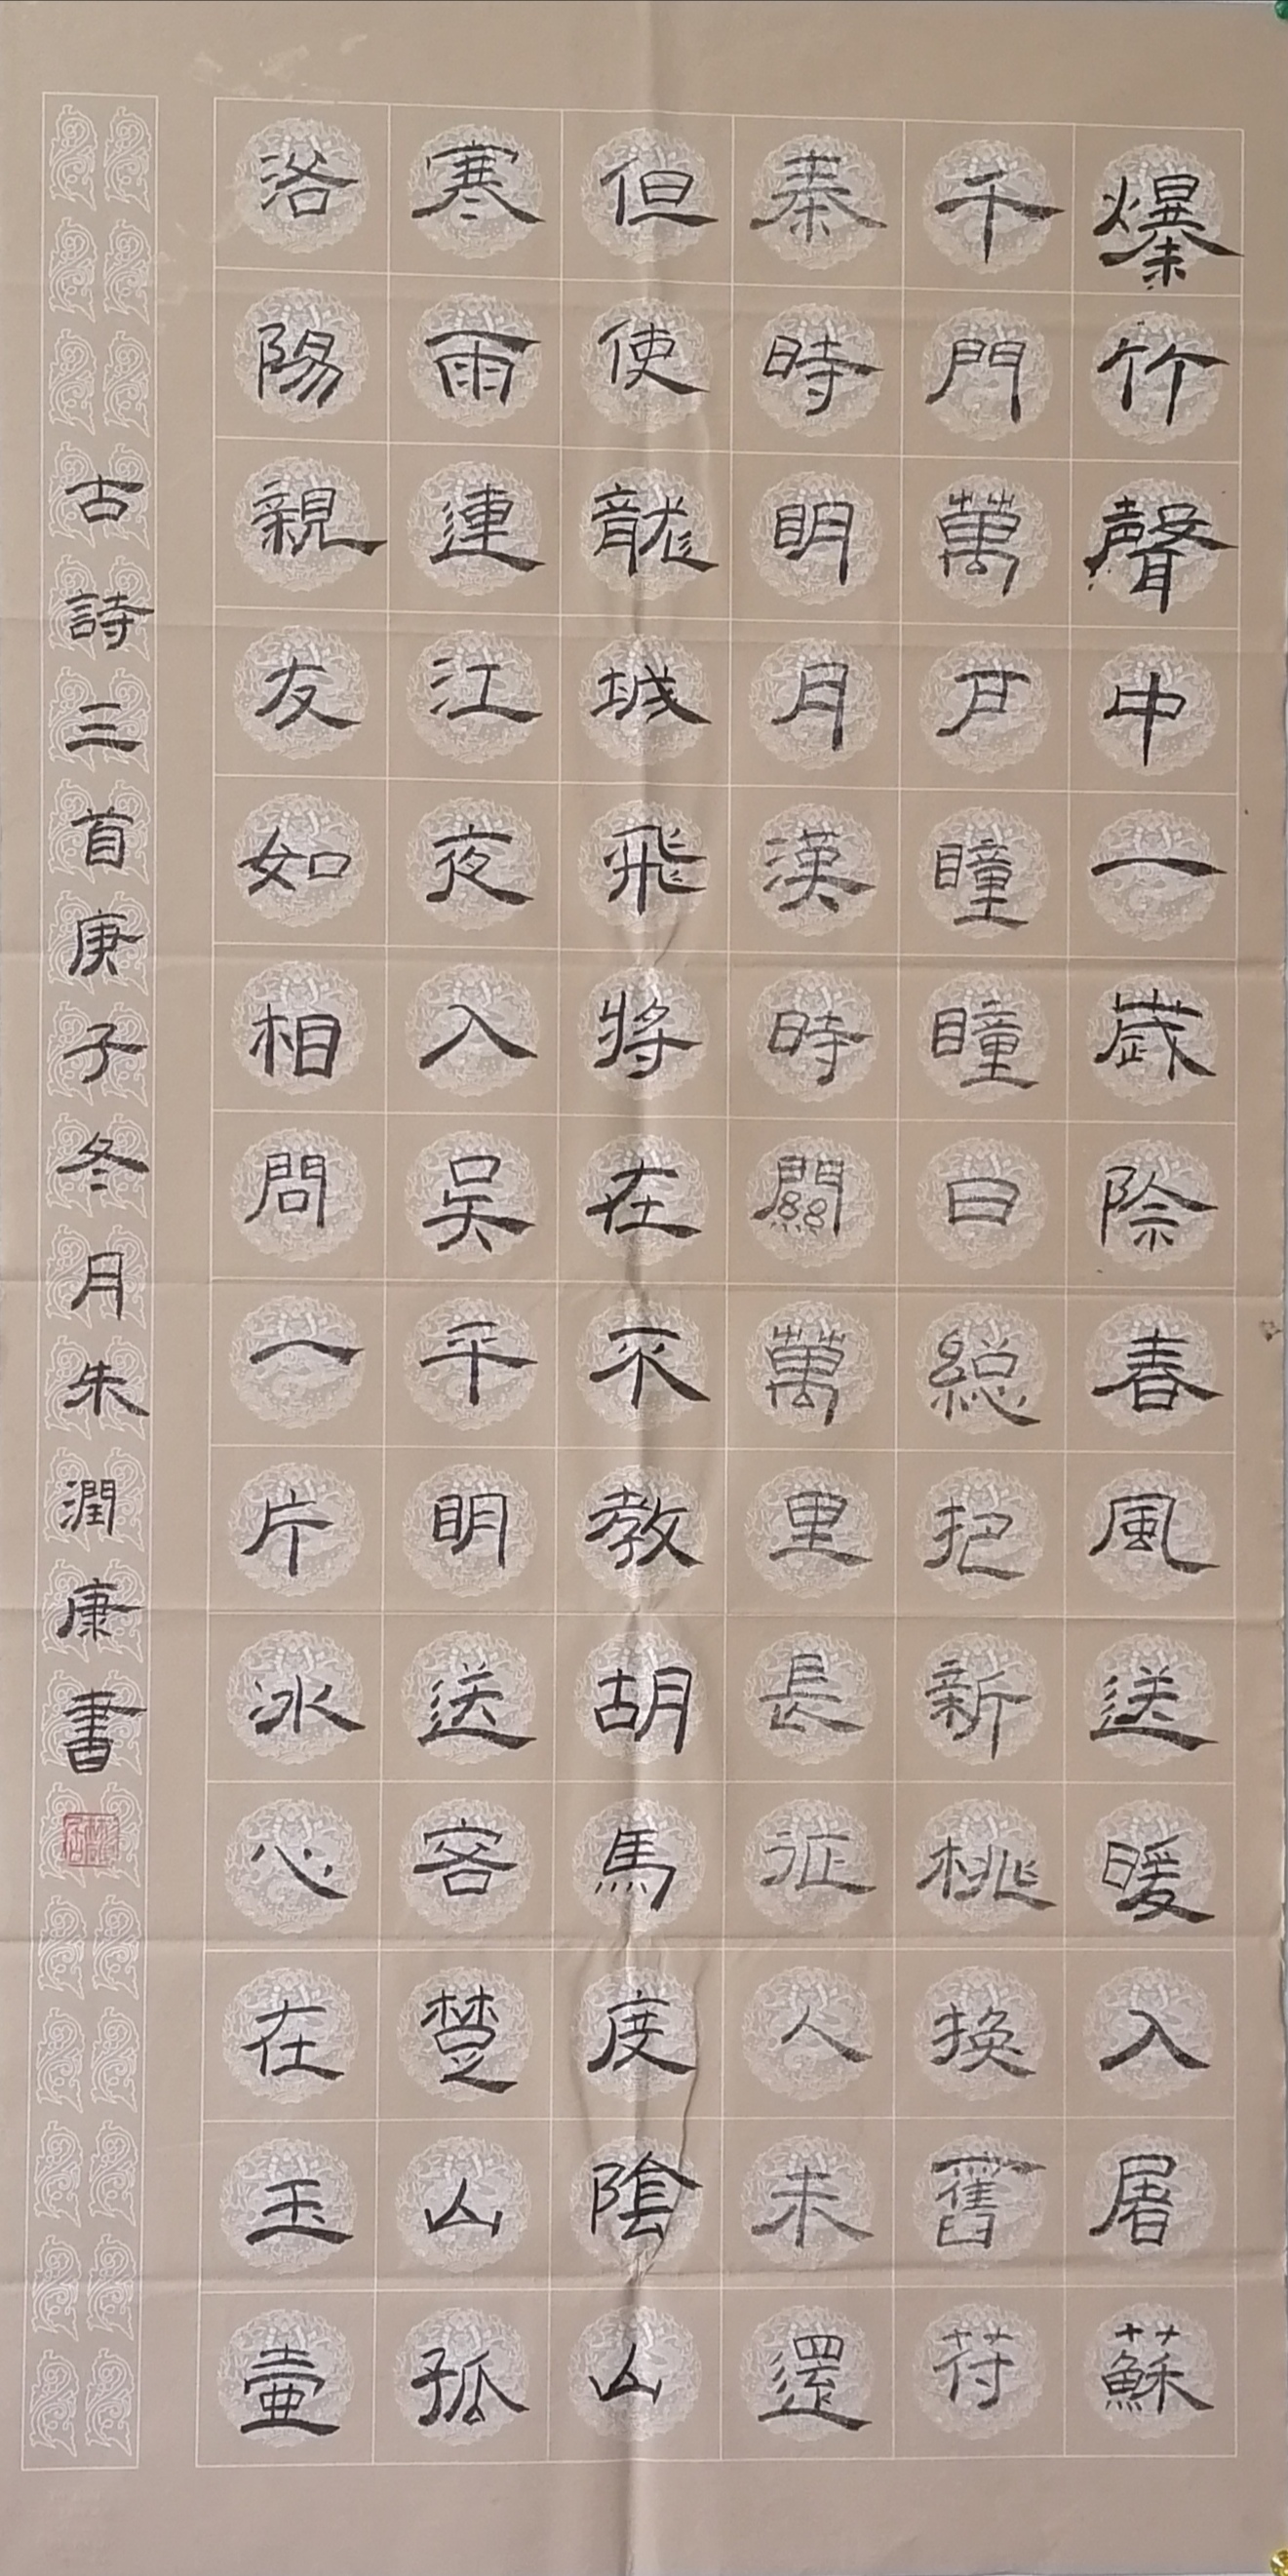 爆竹聲中一歲除春風送暖入屠蘇
千門萬戶瞳瞳日總把新桃換舊符
秦時明月漢時關萬里長征人未還
但使龍城飛將在不教胡馬度陰山
寒雨連江夜入吳平明送客楚山孤
洛陽親友如相問一片冰心在玉壺
古詩三首庚子冬月朱潤康書